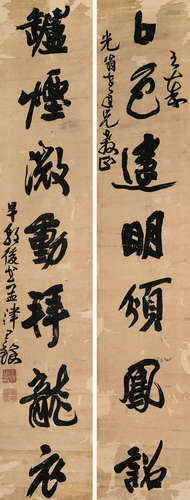 日色遥明頒鳳詔
光翁老道兄教正
鑪煙微動拜龍衣
孟津王鐸